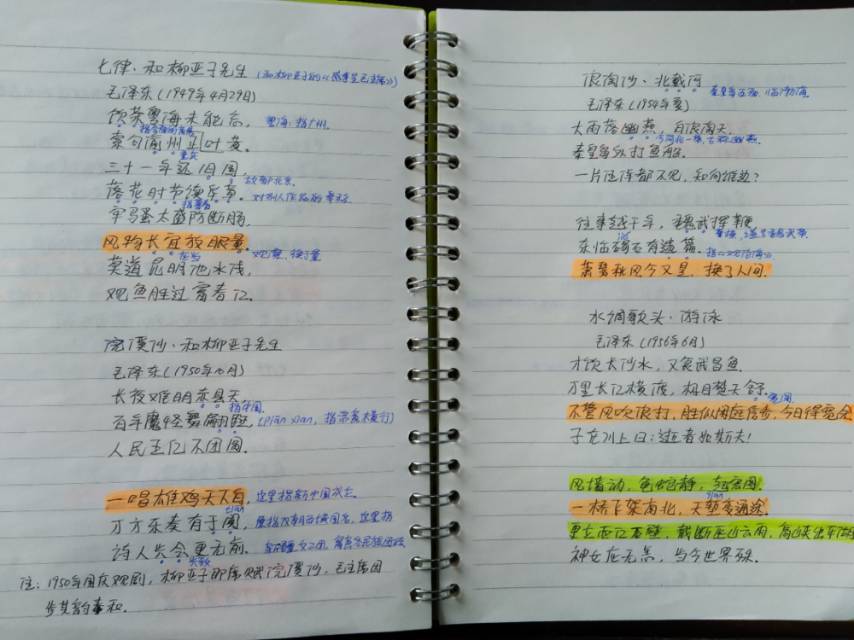 七律·和柳亚子先生(和柳亚子的《感事呈毛主席》)
毛泽东(1949年4月29日)
饮茶粤海未能忘,粤海:指广州
索句渝州叶正黄。
三十一年还旧国,
故都北京
落花时节读华章。对别人作品的尊称
牢骚太盛防肠断,
风物长宜放眼量。
莫道昆明池水浅,
观鱼胜过富春江。
浣溪沙·和柳亚子先生
毛泽东(1950年10月)
长夜难明赤县天,
指中国
百年魔怪舞翩跹,(pian xian,
人民五亿不团圆。
一唱雄鸡天下白,这里指新中国成立
万方乐奏有于阗,
tian
诗人兴会更无前。
兴致
注:1950年国庆观剧,柳亚子即席赋浣溪沙,毛主席因
步其韵奉和。
浪淘沙·北戴河
毛泽东(1954年夏)
大雨落幽燕,白浪滔天,
秦皇岛外打鱼船。
一片汪洋都不见,知向谁边?
往事越千年,魏武挥鞭,
东临碣石有遗篇。
萧瑟秋风今又是,换了人间。
水调歌头·游泳
毛泽东(1956年6月)
才饮长沙水,又食武昌鱼。
万里长江横渡,极目楚天舒。
不管风吹浪打,胜似闲庭信步,今日得宽余
子在川上曰:逝者如斯夫!
风樯动,龟蛇静,起宏图。
一桥飞架南北,天堑变通途。
qian
更立西江石壁,截断巫山云雨,高峡出平湖
神女应无恙,当今世界殊。